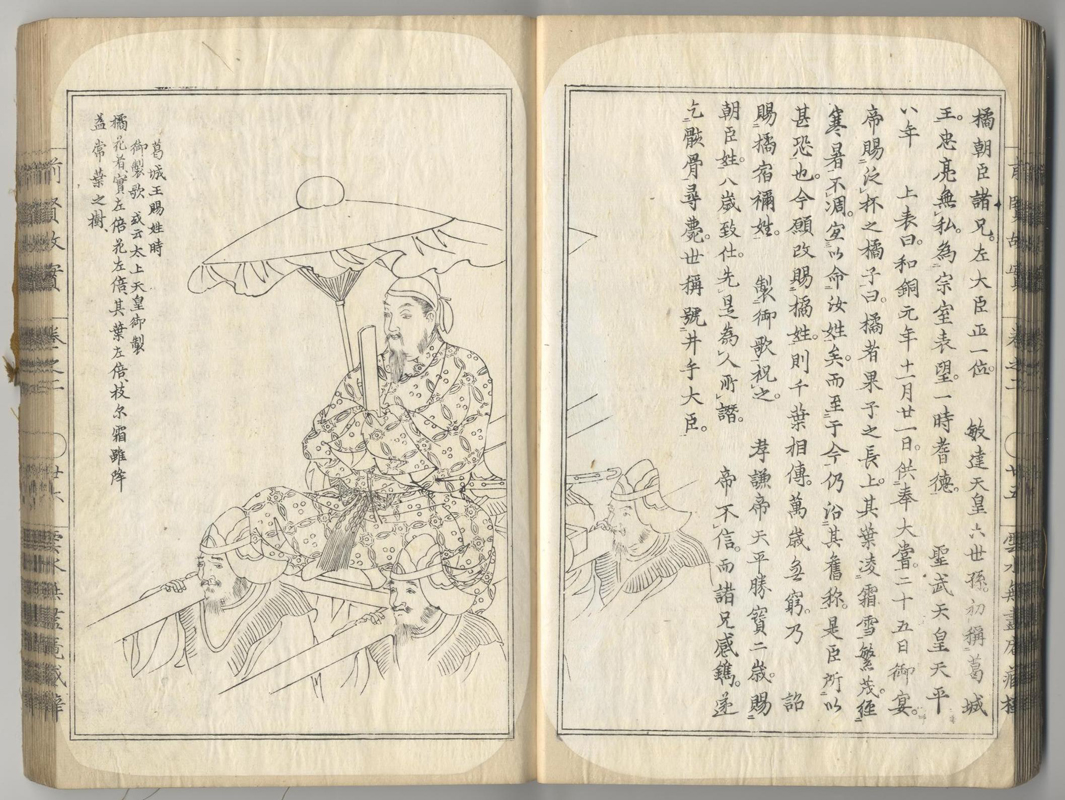 橘朝臣諸兄。左大臣正一位。　敏達天皇六世孫。初稱葛城
王。忠亮無私。為宗室表望。一時耆德。　聖武天皇天平
八年　上表曰。和銅元年十一月廿一日。供奉大嘗。二十五日御宴。
帝賜泛杯之橘子曰。橘者果子之長上。其葉凌霜雪繁茂。經
寒暑不凋。宜以命汝姓矣。而至于今仍沿其舊称。是臣所以
甚恐也。今願改賜橘姓。則千葉相傳。萬歳無窮。乃　詔
賜橘宿禰姓。　製御歌祝之。　孝謙帝天平勝寳二歳。賜
朝臣姓。八歳致仕。先是為人所譖。　帝不信。而諸兄感鐫。遂
乞骸骨。尋薨。世稱號井手大臣。
葛城王賜姓時
御製歌 或云太上天皇御製
橘花者實左倍花左倍其葉左倍枝尓霜雖降
益常葉之樹、
前賢故實
卷之二
〇廿五
前賢故實
卷之二
〇廿六
雲水無盡庵藏梓